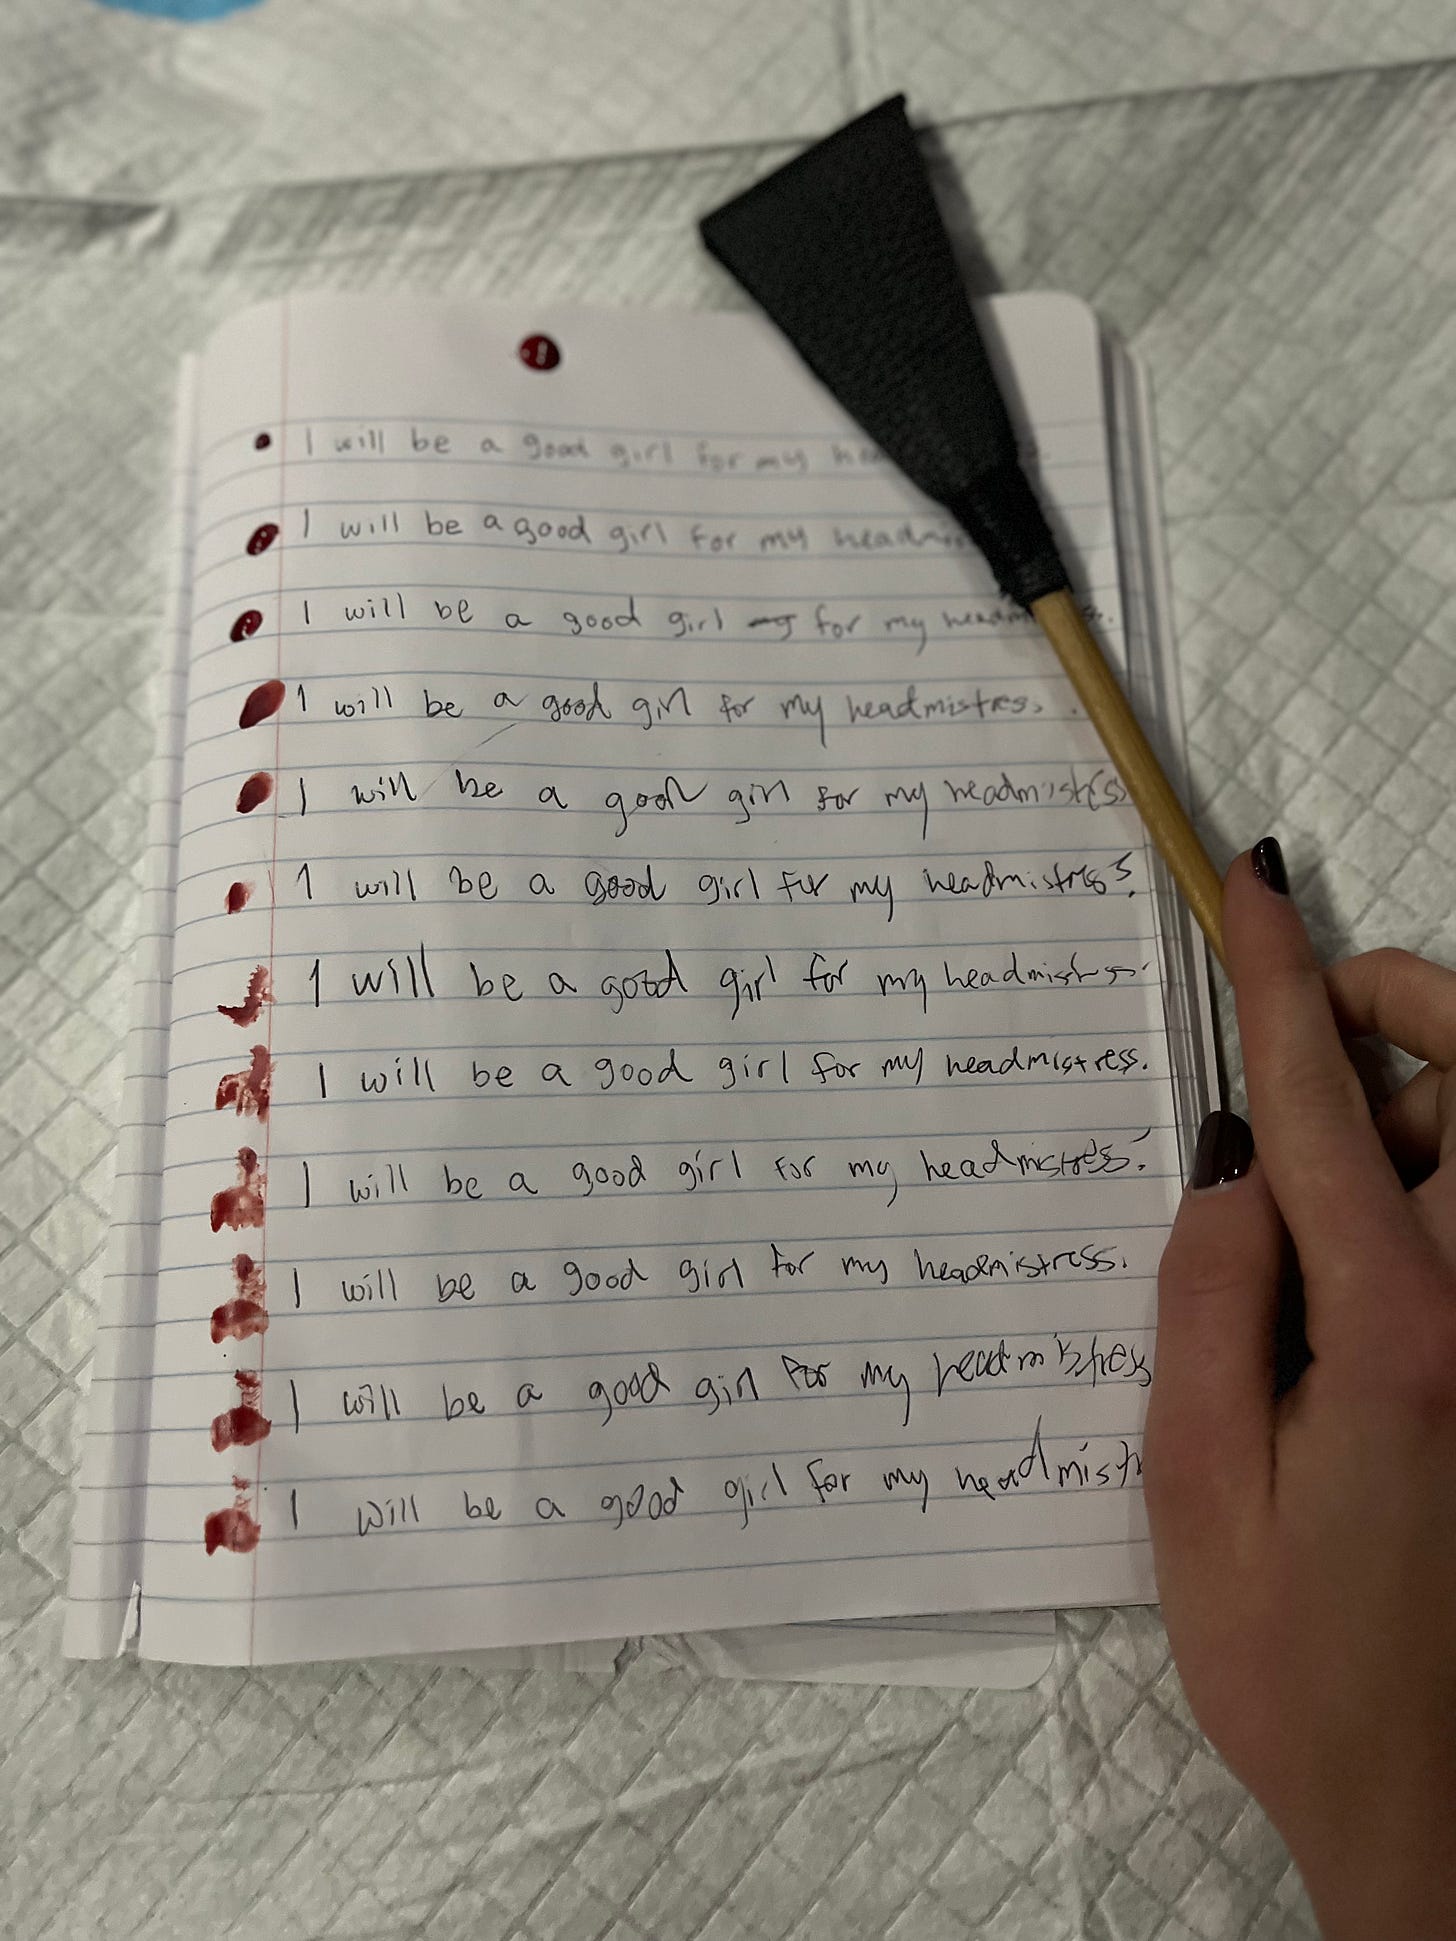 I will be a good girl for my
I will be a good girl for my
I will be a good girl for my
I will be a good girl for my headmistress.
I will be a good girl for my headmistress
I will be a good girl for my headmistress.
I will be a good girl for my headmistress.
I will be a good girl for my headmistress.
I will be a good girl for my headmistress.
I will be a good girl for my headmistress.
I will be a good girl for my headmistress
I will be a good girl for my headmistr